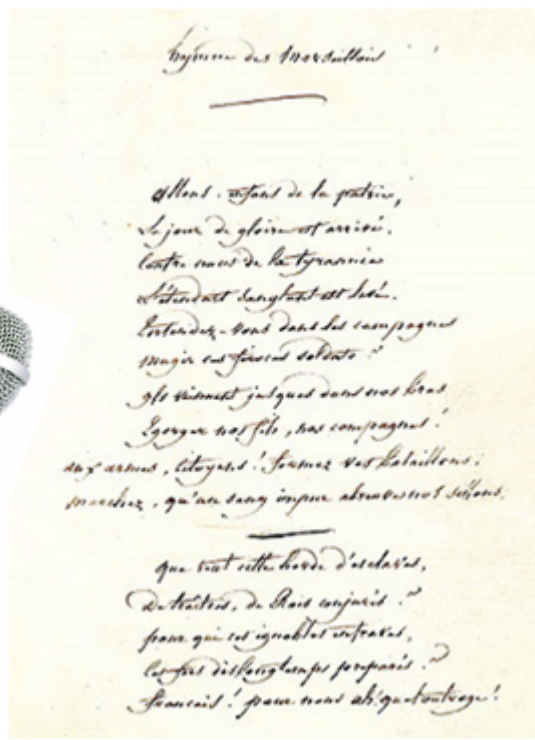 hymne des Marseillois
allons, enfans de la patrie,
Le jour de gloire est arrivé.
Contre nous de la tyrannie
L'étendart sanglant est levé.
Entendez-vous dans les campagnes
mugir ces féroces soldats ?
ils viennent jusques dans nos bras
Egorger nos fils, nos compagnes !
aux armes, citoyens ! formez vos bataillons ;
marchez, qu'un sang impur abreuve nos sillons.
que veut cette horde d'esclaves,
De traîtres, de Rois conjurés ?
pour qui ces ignobles entraves,
Ces fers dès longtemps préparés ?
français ! pour nous ah ! quel outrage !